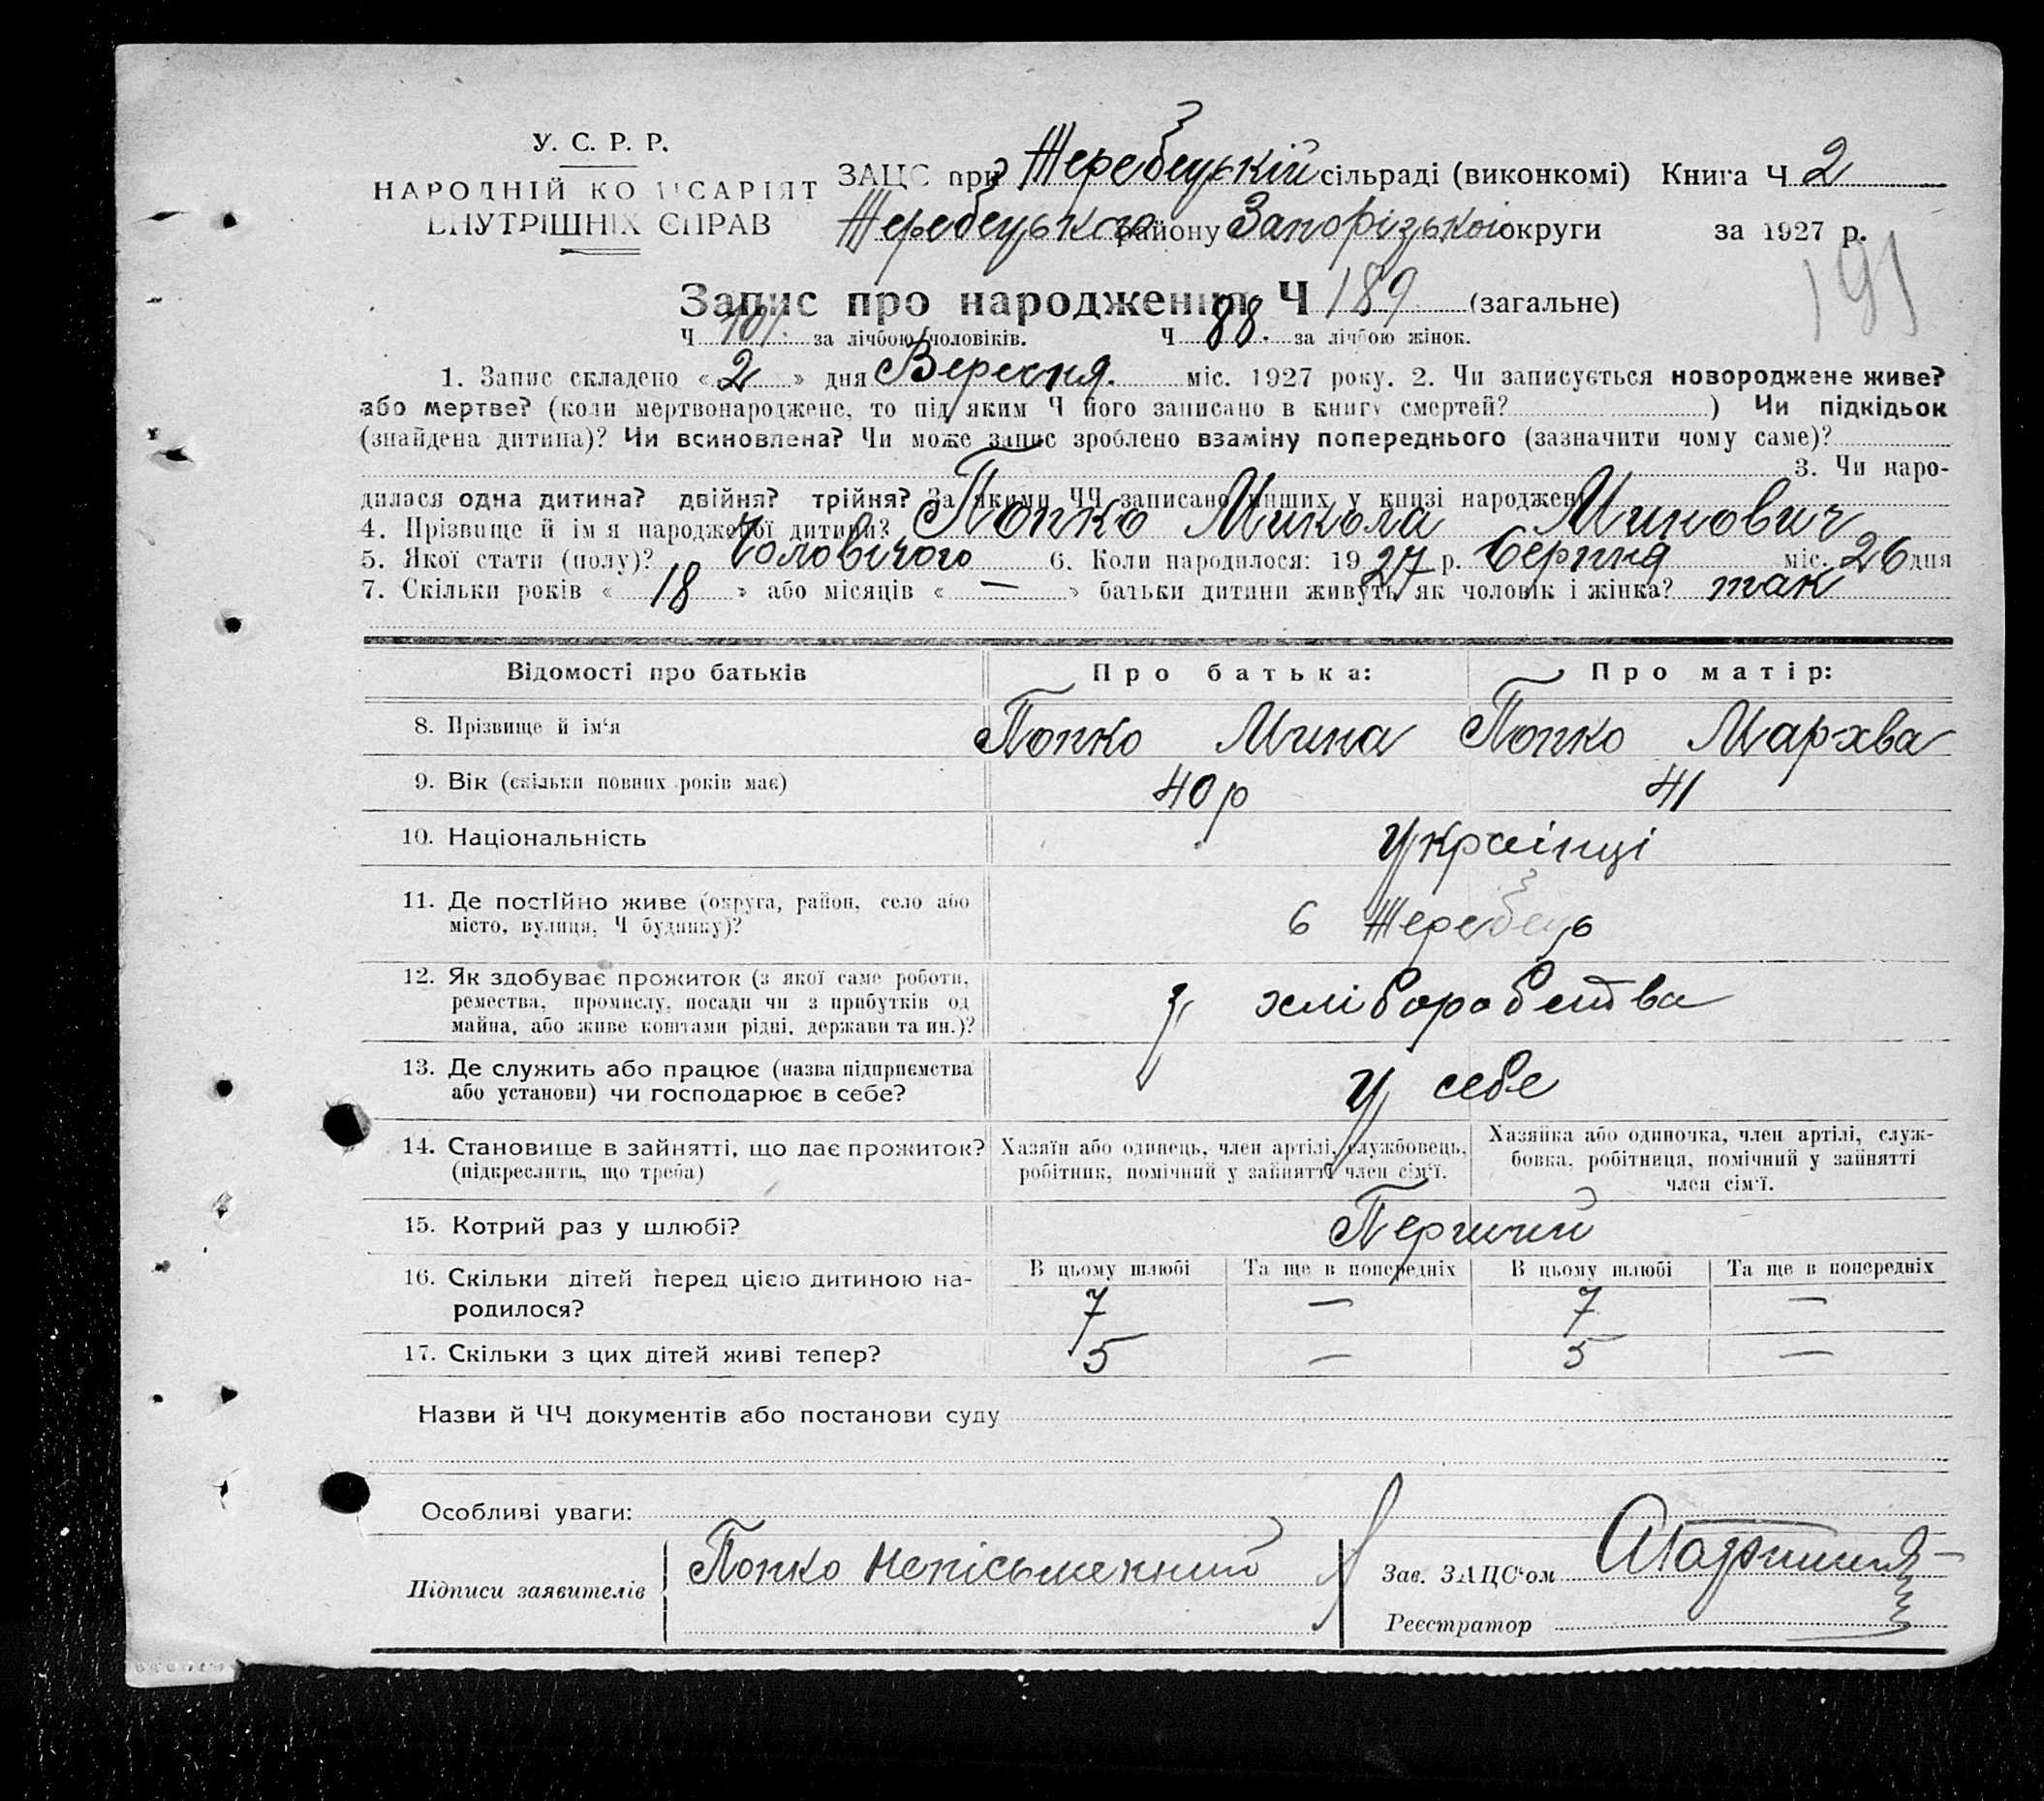 У. С. Р. Р.
НАРОДНІЙ КОМІСАРІЯТ
ВНУТРІШНІХ СПРАВ
ЗАЦС при Жеребецькій сільраді (виконкомі) Книга Ч 2
Жеребецького району Запорізької округи за 1927 р.
191
Запис про народження Ч 189 (загальне)
Ч 101 за лічбою чоловіків. Ч 88. за лічбою жінок.
1. Запис складено « 2 » дня Вересня. міс. 1927 року. 2. Чи записується новороджене живе?
або мертве? (коли мертвонароджене, то під яким Ч його записано в книгу смертей? ) Чи підкідьок
(знайдена дитина)? Чи всиновлена? Чи може запис зроблено взаміну попереднього (зазначити чому саме)?
3. Чи наро-
дилася одна дитина? двійня? трійня? За якими ЧЧ записано инших у книзі народжень
4. Прізвище й ім я народженої дитини? Попко Микола Минович
5. Якої стати (полу)? Чоловічого 6. Коли народилося: 1927 р. Серпня міс. 26 дня
7. Скільки років « 18 » або місяців « — » батьки дитини живуть як чоловік і жінка? так
Відомості про батьків Про батька: Про матір:
8. Прізвище й ім‘я Попко Мина Попко Мархва
9. Вік (скільки повних років має) 40 р 41
10. Національність Українці
11. Де постійно живе (округа, район, село або
місто, вулиця, Ч будинку)? с Жеребець
12. Як здобуває прожиток (з якої саме роботи,
ремества, промислу, посади чи з прибутків од
майна, або живе коштами рідні, держави та ин.)? З хліборобства
13. Де служить або працює (назва підприємства
або установи) чи господарює в себе? У себе
14. Становище в зайнятті, що дає прожиток?
(підкреслити, що треба)
Хазяїн або одинець, член артілі, службовець,
робітник, помічний у зайнятті член сім‘ї.
Хазяйка або одиночка, член артілі, служ-
бовка, робітниця, помічний у зайнятті
член сім‘ї.
15. Котрий раз у шлюбі? Перший
16. Скільки дітей перед цією дитиною на-
родилося?
В цьому шлюбі Та ще в попередніх В цьому шлюбі Та ще в попередніх
7 — 7 —
17. Скільки з цих дітей живі тепер? 5 — 5 —
Назви й ЧЧ документів або постанови суду
Особливі уваги:
Підписи заявителів Попко Непісьменний
Зав. ЗАЦС‘ом
Реєстратор